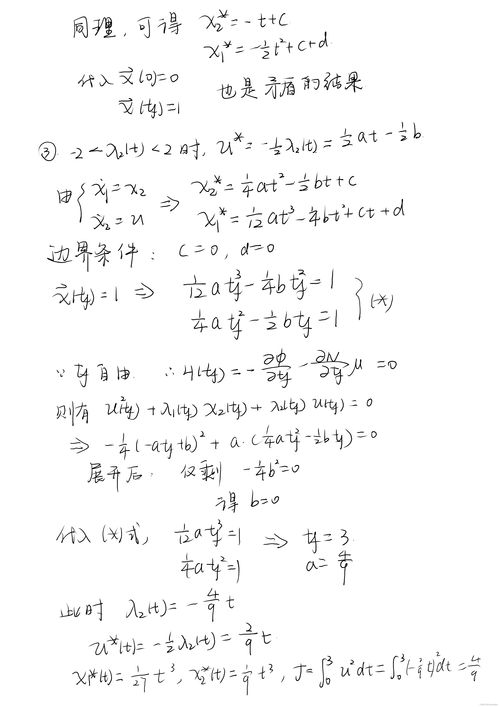 同理，可得 x₂* = -t+c
x₁* = -½t²+c+d
代入 x⃗(0)=0
x⃗(tf)=1 也是矛盾的结果
③ -2<λ₂(t)<2时，u* = -½λ₂(t) = ½at - ½b
由 { ẋ₁=x₂ ⇒ x₂* = ¼at² - ½bt + c
ẋ₂=u x₁* = 1/12 at³ - ¼bt² + ct + d
边界条件： c=0, d=0
x⃗(tf)=1 ⇒ 1/12 a tf³ - ¼b tf² = 1
¼a tf² - ½b tf = 1 } (*)
∵ tf 自由 ∴ H(tf) = -∂Φ/∂tf - ∂N/∂tf μ = 0
则有 u²(tf) + λ₁(tf) x₂(tf) + λ₂(tf) u(tf) = 0
⇒ -¼(-atf+b)² + a·(¼atf² - ½btf) = 0
展开后： 仅剩 -¼b²=0
得 b=0
代入(*)式， 1/12 a tf³=1 ⇒ tf=3.
¼a tf²=1 a=4/9
此时 λ₂(t) = -4/9 t
u*(t) = -½λ₂(t) = 2/9 t
x₁*(t) = 1/27 t³, x₂*(t) = 1/9 t³, J=∫₀³ u²dt = ∫₀³(-2/9 t)²dt = 4/9